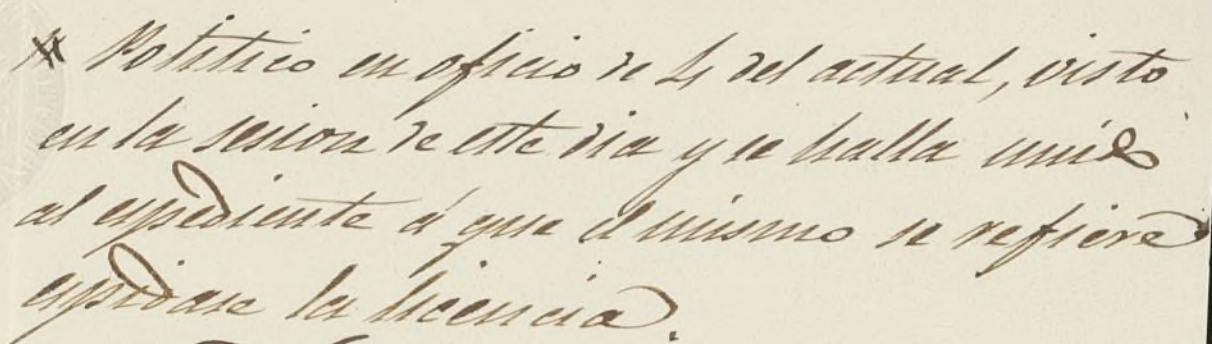 Politico en oficio de 4 del actual, visto
en la sesion de este dia y se halla unido
al espediente á que el mismo se refiere
espidase la licencia.